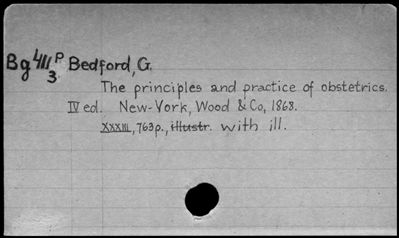 Bg 4III P Bedford, G.
3
The principles and practice of obstetrics.
IV ed. New-York, Wood & Co, 1868.
XXXIII, 763p., illustr. with ill.